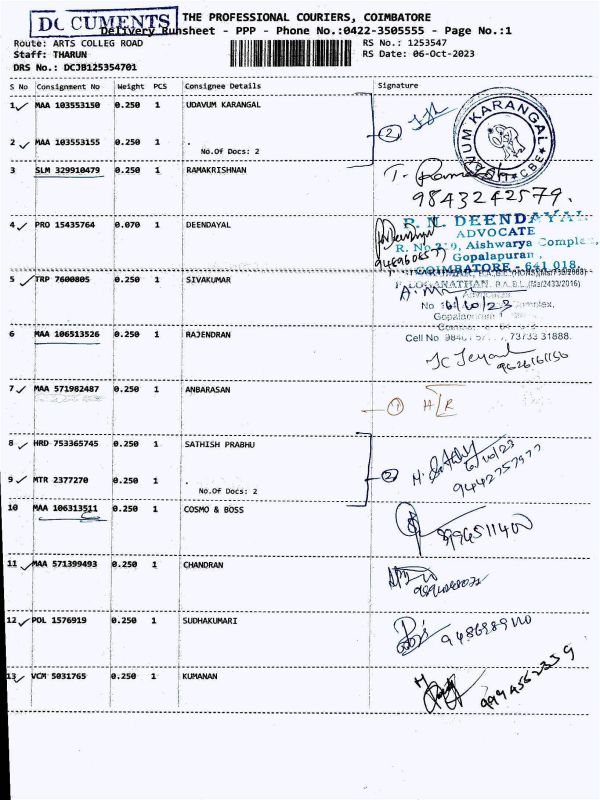 DOCUMENTS
THE PROFESSIONAL COURIERS, COIMBATORE
Delivery Runsheet - PPP - Phone No.:0422-3505555 - Page No.:1
Route: ARTS COLLEG ROAD
RS No.: 1253547
Staff: THARUN
RS Date: 06-Oct-2023
DRS No.: DCJB125354701
S No Consignment No Weight PCS Consignee Details Signature
1 MAA 103553150 0.250 1 UDAVUM KARANGAL
2 MAA 103553155 0.250 1 .
No.Of Docs: 2
2
UDAVUM KARANGAL
CBE
3 SLM 329910479 0.250 1 RAMAKRISHNAN
9843242579.
4 PRO 15435764 0.070 1 DEENDAYAL
R. N. DEENDAYAL
ADVOCATE
R. No.219, Aishwarya Complex,
Gopalapuram,
COIMBATORE - 641 018.
5 TRP 7600805 0.250 1 SIVAKUMAR
LOGANATHAN, B.A.B.L.,(Ms/2433/2016)
6/10/23
Cell No 73733 31888.
6 MAA 106513526 0.250 1 RAJENDRAN
7 MAA 571982487 0.250 1 ANBARASAN
1 H/R
8 HRD 753365745 0.250 1 SATHISH PRABHU
9 MTR 2377270 0.250 1 .
No.Of Docs: 2
2
6/10/23
9442757977
10 MAA 106313511 0.250 1 COSMO & BOSS
11 MAA 571399493 0.250 1 CHANDRAN
12 POL 1576919 0.250 1 SUDHAKUMARI
13 VCM 5031765 0.250 1 KUMANAN